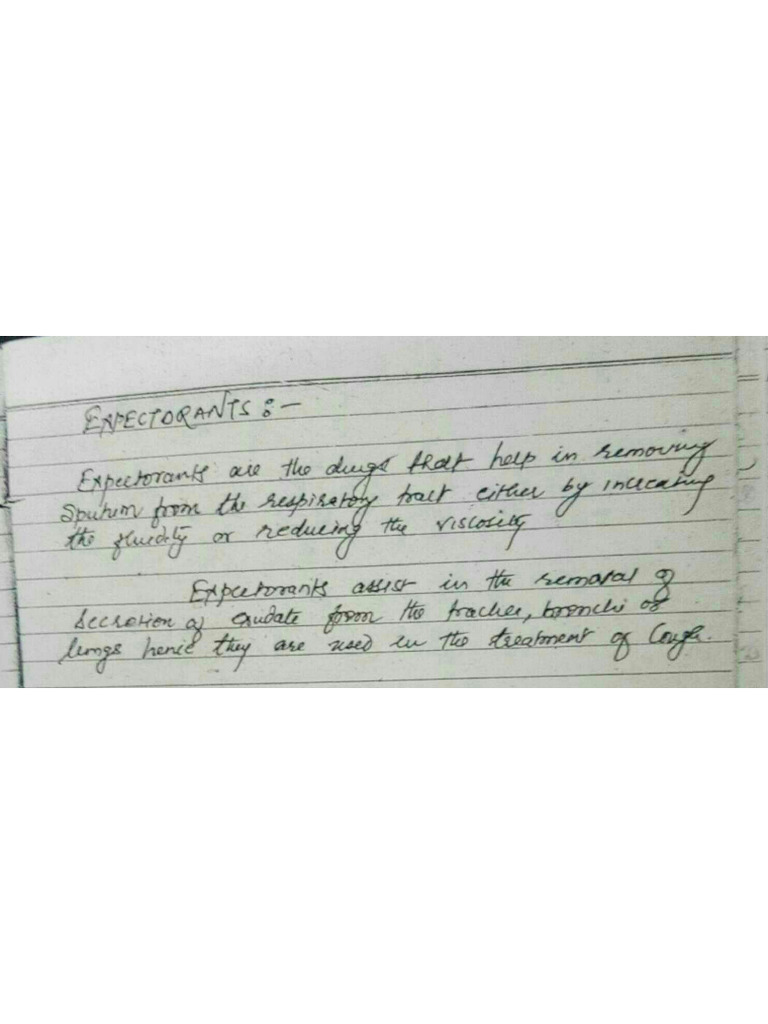 EXPECTORANTS :-
Expectorants are the drugs that help in removing
Sputum from the respiratory tract either by increasing
the fluidity or reducing the viscosity
Expectorants assist in the removal of
Secretion of exudate from the trachea, bronchi or
lungs hence they are used in the treatment of Cough.